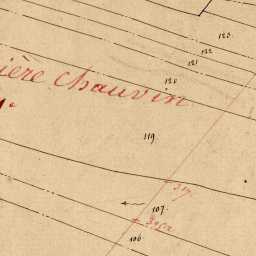 123.
122
121
120
ière Chauvin
119.
107.
106